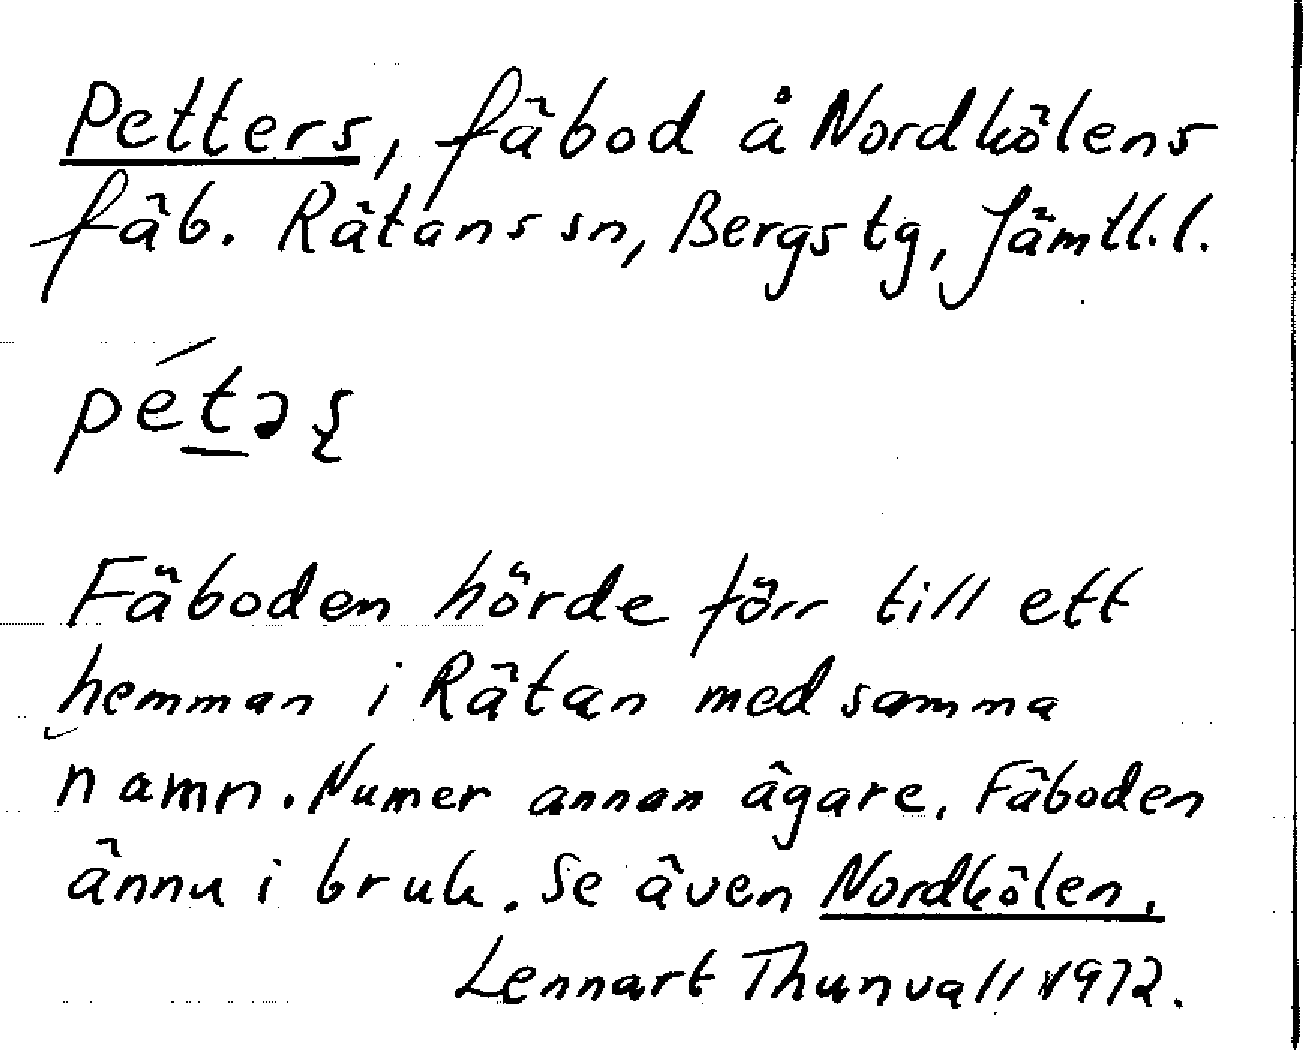 Petters, fäbod å Nordkölens
fäb. Rätans sn, Bergs tg, Jämtl. l.
pét̲əʂ
Fäboden hörde förr till ett
hemman i Rätan med samma
namn. Numer annan ägare. Fäboden
ännu i bruk. Se även Nordkölen.
Lennart Thunvall 1972.